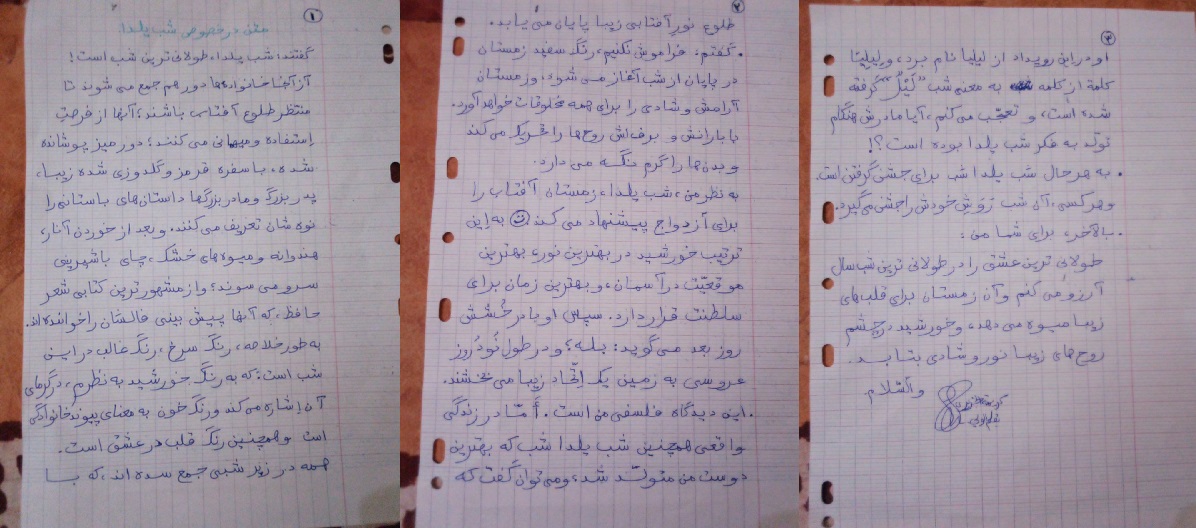 ۱
متن در خصوص شب یلدا.
گفتند: شب یلدا، طولانی ترین شب است!
از آنجا خانواده‌ها دور هم جمع می شوند تا
منتظر طلوع آفتاب باشند؛ آنها از فرصتِ
استفاده و میهمانی می کنند؛ دور میز پوشانده
شده، با سفره قرمز و گلدوزی شده زیبا،
پدر بزرگ و مادر بزرگها داستان‌های باستانی را
نوه شان تعریف می کنند. و بعد از خوردن آنار،
هندوانه و میوه های خشک، چای با شیرینی
سرو می سوند؛ و از مشهور ترین کتابی شعر
حافظ، که آنها پیش بینی فالشان را خوانده اند.
به طور خلاصه، رنگ سرخ، رنگ غالب در این
شب است: که به رنگ خورشید به نظرم، در گرمای
آن إشاره می کند و رنگ خون به معنای پیوند خانوادگی
است و همچنین رنگ قلب در عشق است.
همه در زیر شبی جمع سده اند، که با
۲
طلوع نور آفتابی زیبا پایان می یابد.
. گفتم: فراموش نکنیم، رنگ سفید زمستان
در پایان از شب آغاز می شود، و زمستان
آرامش و شادی را برای همه مخلوقات خواهد آورد.
با بارانش و برف‌اش روح‌ها را تحریک می کند
و بدن‌ها را گرم نگه می دارد.
به نظر من، شب یلدا، زمستان آفتاب را
برای آزدواج پیشنهاد می کند، به این
ترتیب خورشید در بهترین نور، بهترین
موقعیّت در آسمان، و بهترین زمان برای
سلطنت قرار دارد. سپس او با درخُشش
روز بعد می گوید: بله؛ و در طول نُود روز
عروسی به زمین یک اِتّحاد زیبا می بخشند.
. این دیدگاه فلسفی من است. أمّا در زندگی
واقعی همچنین شب یلدا شب که بهترین
دوست من متولّد شد، و می توان گفت که
۳
او در این رویداد از لیلیا نام برد، و لیلیتا
کلمة از کلمه به معنی شب "لَیْلٌ" گرفته
شده است، و تعجّب می کنم، آیا مادرش هنگام
تولّد به فکر شب یلدا بوده است؟!
. به هر حال شب یلدا شب برای جشن گرفتن است.
و هر کسی، آن شب رَوِش خودش را جشن می گیرد.
. بالآخر، برای شما من:
طولانی ترین عشق را در طولانی ترین شب سال
آرزو می کنم و آن زمستان برای قلب‌های
زیبا میوه می دهد، و خورشید در چشم
روح های زیبا نور و شادی بتابد.
و السّلام.